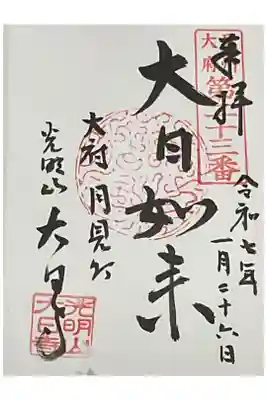 奉拝
令和七年
一月二十六日
大日如来
大府 月見町
光明山 大日寺
大府
十三番
光明山
大日寺